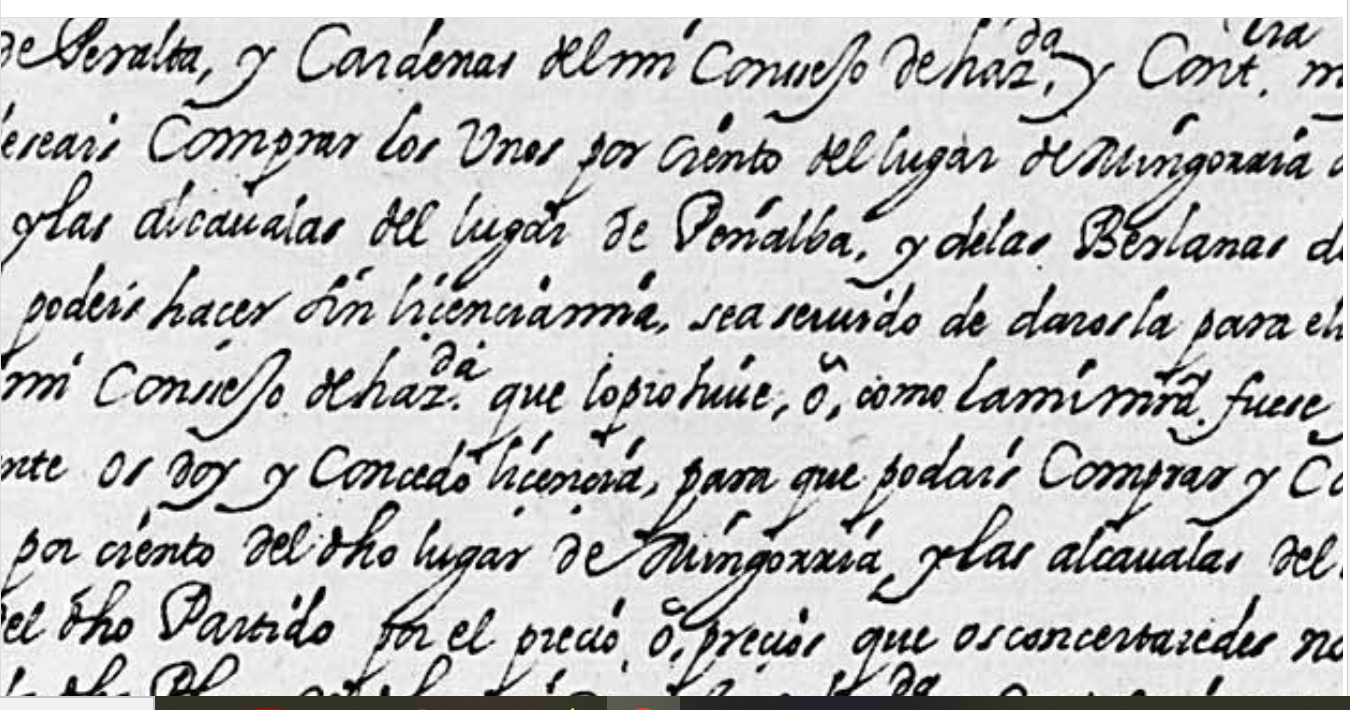 de Peralta, y Cardenas del mi Consejo de haz.da, y Cont.ria
eseais Comprar los Unos por ciento del lugar de Mingorria
y las alcaualas del lugar de Penalba, y delas Berlanas
podeis hacer sin licencia mia, sea seruido de darosla para
mi Consejo de haz.da que lo prohiue, ô, como la mi mrd. fuese
nte os doy y Concedo licencia, para que podais Comprar y
por ciento del dho lugar de Mingorria, y las alcaualas del
el dho Partido por el precio, ô, precios que os concertaredes